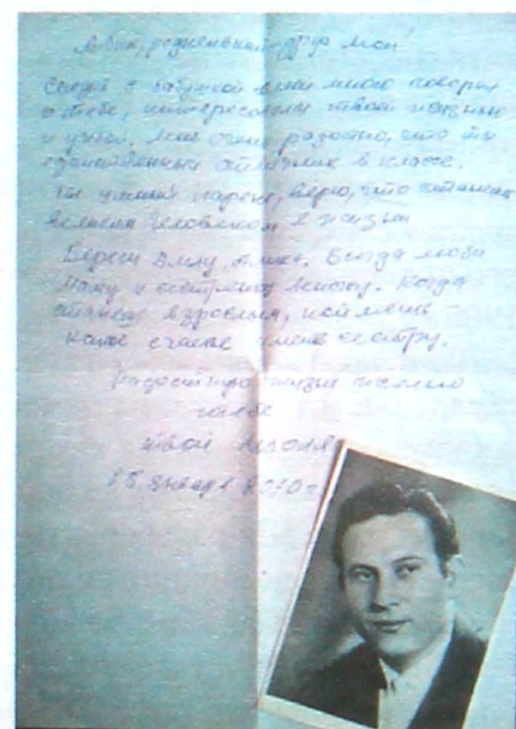 родненький друг мой!
с бабушкой много говорим
о тебе, интересовались твоей жизнью
и учёбой. Мне очень радостно, что ты
единственный отличник в классе.
Ты умный парень, верю, что станешь
великим человеком в жизни
Береги Всегда люби
маму и сестричку Когда
станешь взрослым, поймешь
какое счастье иметь сестру.
Радостную жизнь желаю
тебе
твой
15 января 2010 г